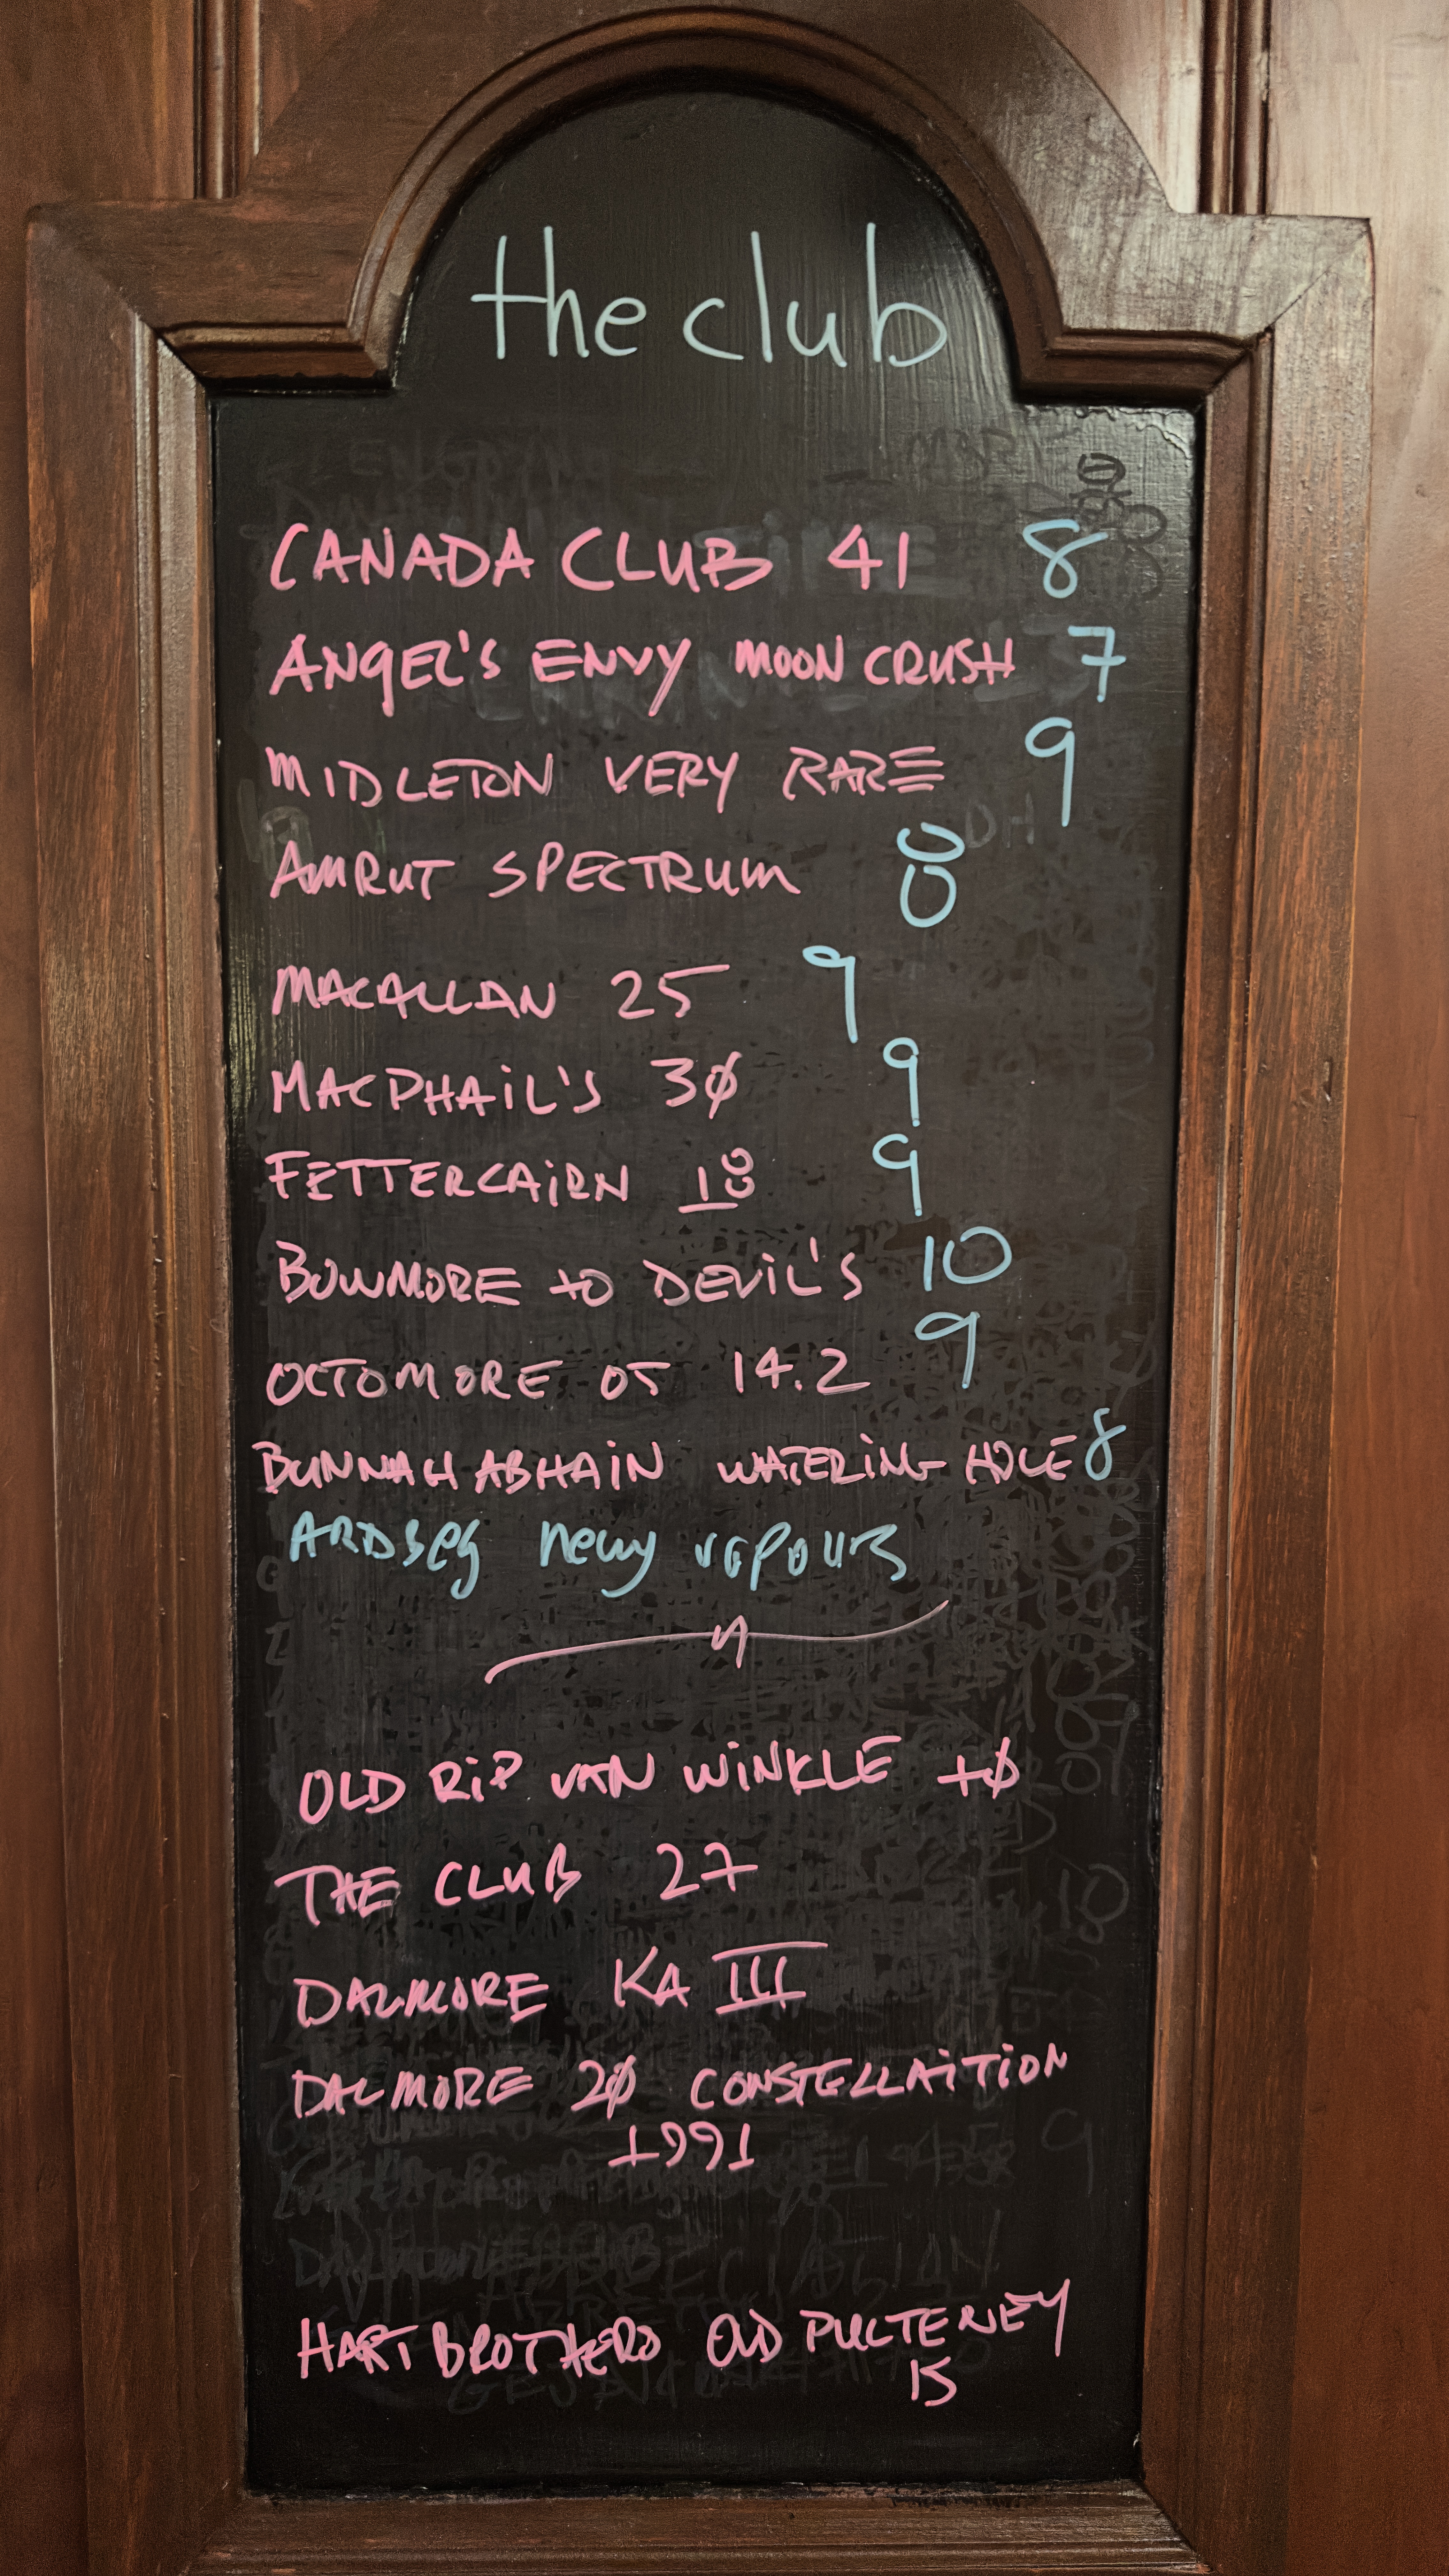 the club
CANADA CLUB 41 8
ANGEL'S ENVY MOON CRUSH 7
MIDLETON VERY RARE 9
AMRUT SPECTRUM 8
MACALLAN 25 9
MACPHAIL'S 30 9
FETTERCAIRN 18 9
BOWMORE to DEVIL'S 10
OCTOMORE 05 14.2 9
BUNNAHABHAIN WATERING HOLE 8
ARDBEG vapours
OLD RIP VAN WINKLE 10
THE CLUB 27
DALMORE KA III
DALMORE 20 CONSTELLAITION
1991
HART BROTHERS OLD PULTENEY
15